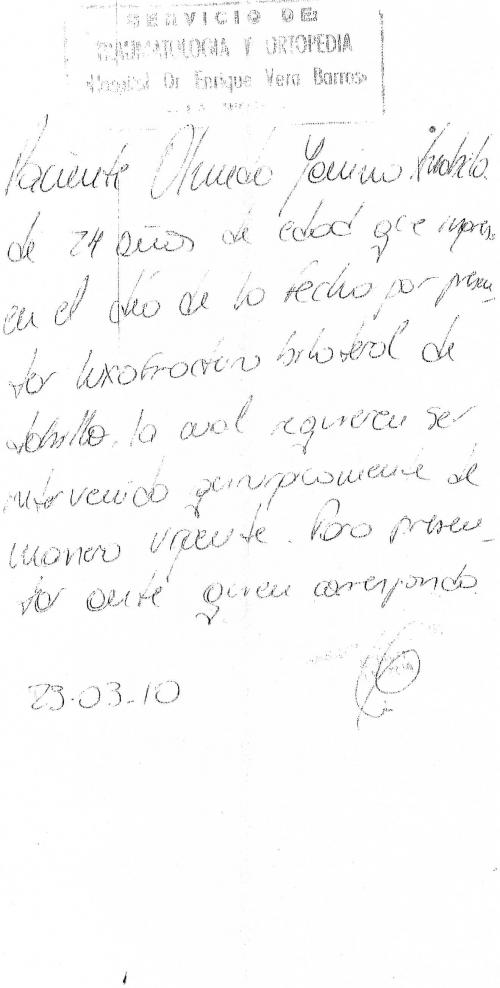 SERVICIO DE
TRAUMATOLOGIA Y ORTOPEDIA
«Hospital Dr Enrique Vera Barros»
Paciente Olmedo Yanina
de 24 años de edad que ingresa
en el día de la fecha por presen-
tar luxofractura bilateral de
tobillo, la cual requieren ser
intervenido quirurgicamente de
manera urgente. Para presen-
tar ante quien corresponda
23-03-10